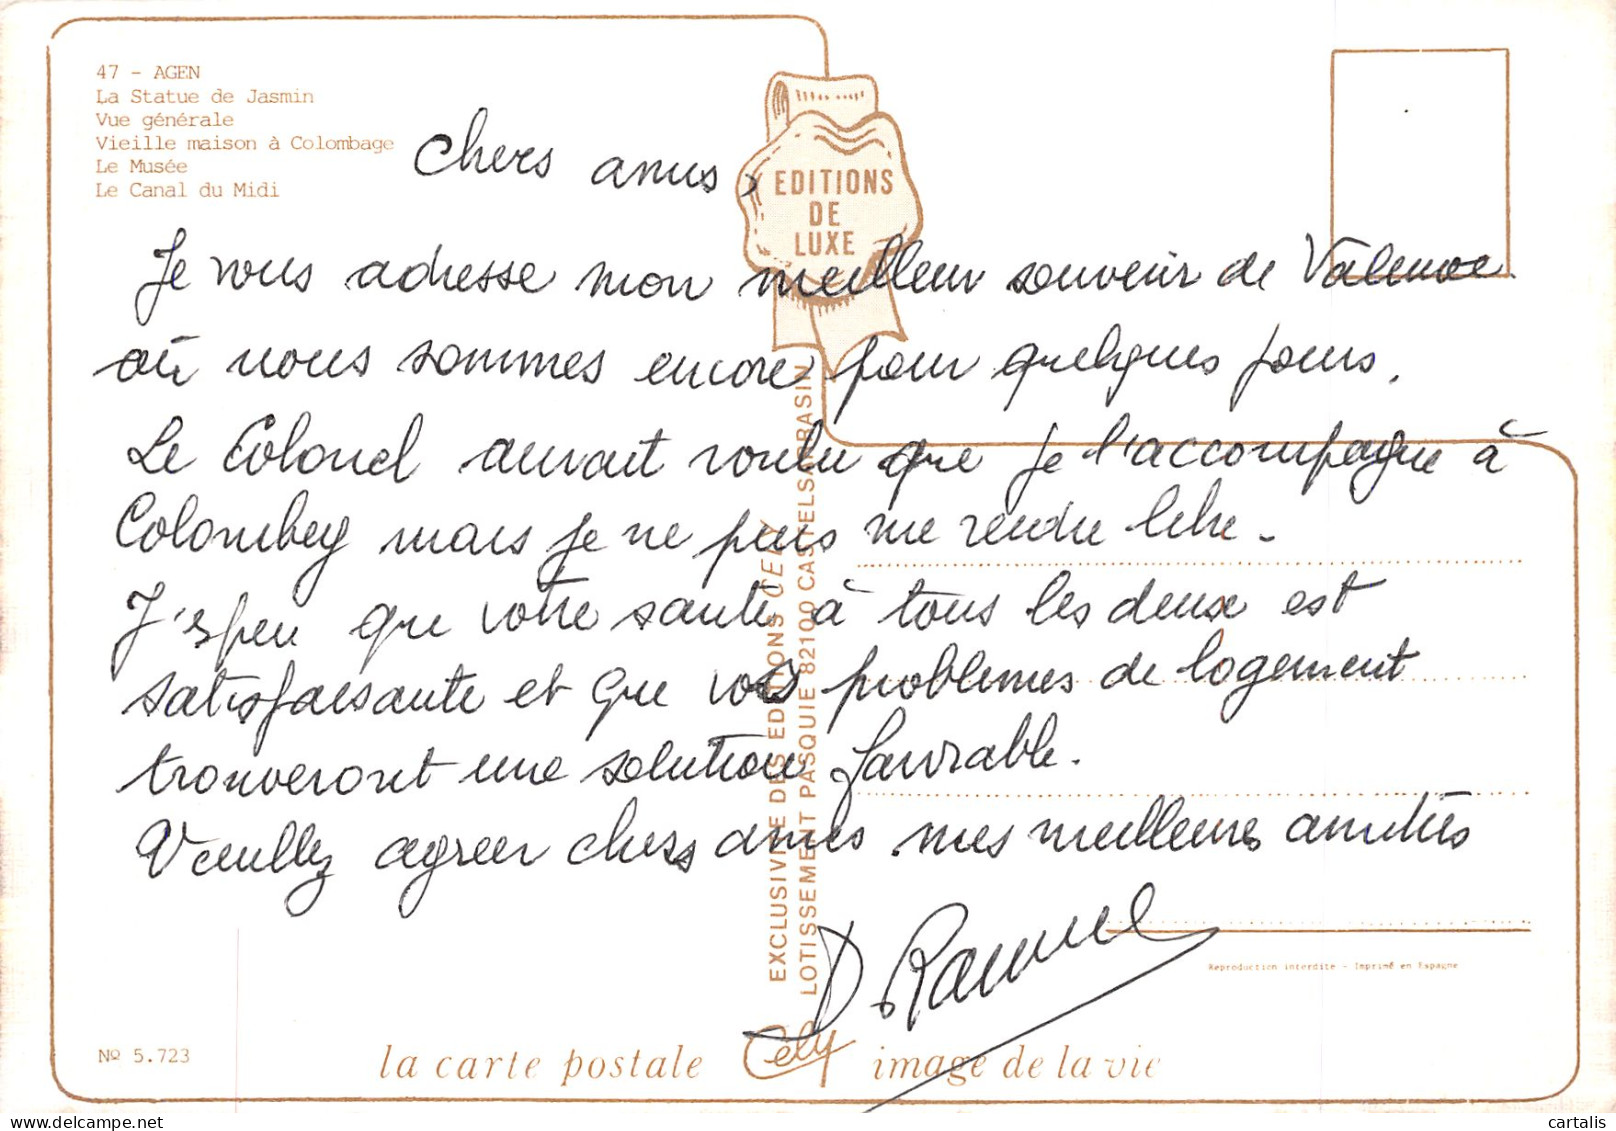 47 - AGEN
La Statue de Jasmin
Vue générale
Vieille maison à Colombage
Le Musée
Le Canal du Midi
EDITIONS
DE
LUXE
Chers amis,
Je vous adresse mon meilleur souvenir de Valence
où nous sommes encore pour quelques jours.
Le Colonel aurait voulu que je l'accompagne à
Colombey mais je ne puis me rendre libre.
J'espère que votre santé à tous les deux est
satisfaisante et que vos problèmes de logement
trouveront une solution favorable.
Veuillez agréer chers amis mes meilleures amitiés
EXCLUSIVITE DES EDITIONS CELY
LOTISSEMENT PASQUIE 82100 CASTELSARRASIN
Reproduction interdite - Imprimé en Espagne
Nº 5.723
la carte postale Cely image de la vie
cartalis
delcampe.net